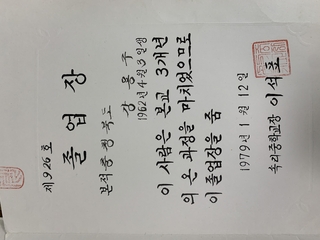 제926호
졸업장
본적 충청북도
강용구
1962년4월3일생
이 사람은 본교 3개년
의 온 과정을 마치었으므로
이 졸업장을 줌
1979년 1월 12일
속리중학교장 이석호